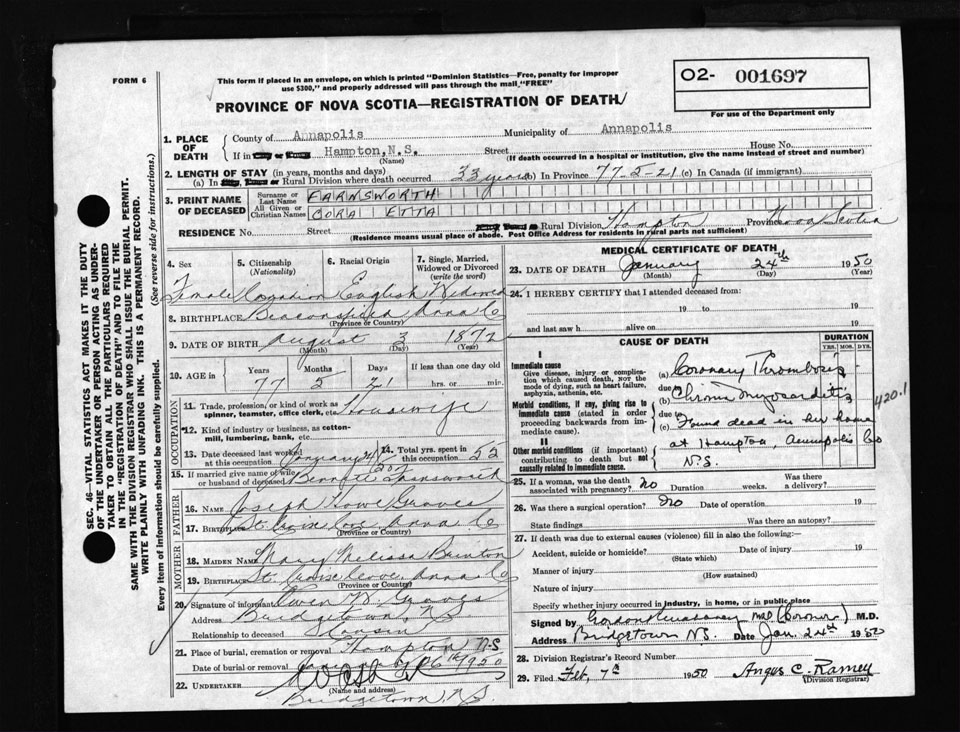 FORM 6
This form if placed in an envelope, on which is printed "Dominion Statistics—Free, penalty for improper
use $300," and properly addressed will pass through the mail "FREE"
O2- 001697
For use of the Department only
PROVINCE OF NOVA SCOTIA—REGISTRATION OF DEATH
SEC. 46—VITAL STATISTICS ACT MAKES IT THE DUTY
OF THE UNDERTAKER OR PERSON ACTING AS UNDER-
TAKER TO OBTAIN ALL THE PARTICULARS REQUIRED
IN THE "REGISTRATION OF DEATH" AND TO FILE THE
SAME WITH THE DIVISION REGISTRAR WHO SHALL ISSUE THE BURIAL PERMIT.
WRITE PLAINLY WITH UNFADING INK. THIS IS A PERMANENT RECORD.
Every item of information should be carefully supplied. (See reverse side for instructions.)
1. PLACE OF DEATH County of Annapolis Municipality of Annapolis
If in Hampton, N.S. Street House No.
(Name) (If death occurred in a hospital or institution, give the name instead of street and number)
2. LENGTH OF STAY (in years, months and days)
(a) In Rural Division where death occurred 33 years (b) In Province 77-5-21 (c) In Canada (if immigrant)
3. PRINT NAME OF DECEASED Surname or Last Name FARNSWORTH
All Given or Christian Names CORA ETTA
RESIDENCE No. Street Rural Division Hampton Province Nova Scotia
(Residence means usual place of abode. Post Office Address for residents in rural parts not sufficient)
4. Sex 5. Citizenship (Nationality) 6. Racial Origin 7. Single, Married, Widowed or Divorced (write the word)
Female Canadian English Widowed
8. BIRTHPLACE Beaconsfield Anna Co
(Province or Country)
9. DATE OF BIRTH August 3 1872
(Month) (Day) (Year)
10. AGE in Years Months Days If less than one day old
77 5 21 hrs. or min.
OCCUPATION
11. Trade, profession or kind of work as spinner, teamster, office clerk, etc. Housewife
12. Kind of industry or business, as cotton-mill, lumbering, bank, etc.
13. Date deceased last worked at this occupation January 14. Total yrs. spent in this occupation 52
15. If married give name of wife or husband of deceased Burnell Farnsworth
FATHER
16. NAME Joseph Howe Graves
17. BIRTHPLACE St. Croix Cove Anna Co
(Province or Country)
MOTHER
18. MAIDEN NAME Mary Melissa Brinton
19. BIRTHPLACE St. Croix Cove Anna Co
(Province or Country)
20. Signature of informant Owen W. Graves
Address Bridgetown, N.S.
Relationship to deceased Cousin
21. Place of burial, cremation or removal Hampton N.S
Date of burial or removal January 26th 1950
22. UNDERTAKER
(Name and address)
Bridgetown, N.S.
MEDICAL CERTIFICATE OF DEATH
23. DATE OF DEATH January 24th 1950
(Month) (Day)
24. I HEREBY CERTIFY that I attended deceased from:
19 to 19
and last saw h alive on 19
CAUSE OF DEATH DURATION
YRS. MOS. DYS.
I
Immediate cause
Give disease, injury or complication which caused death, NOT the mode of dying, such as heart failure, asphyxia, asthenia, etc.
(a) Coronary Thrombosis
due to
(b) Chronic Myocarditis
420.1
Morbid conditions, if any, giving rise to immediate cause (stated in order proceeding backwards from immediate cause).
due to
(c) Found dead in her home
at Hampton, Annapolis Co
N.S.
II
Other morbid conditions (if important) contributing to death but not causally related to immediate cause.
25. If a woman, was the death associated with pregnancy? No Duration weeks. Was there a delivery?
26. Was there a surgical operation? No Date of operation 19
State findings Was there an autopsy?
27. If death was due to external causes (violence) fill in also the following:—
Accident, suicide or homicide? Date of injury 19
(State which)
Manner of injury
(How sustained)
Nature of injury
Specify whether injury occurred in industry, in home, or in public place
Signed by Gordon MD (Coroner) M.D.
Address Bridgetown N.S. Date Jan. 24th 1950
28. Division Registrar's Record Number
29. Filed Feb. 7th 1950 Angus C. Ramey
(Division Registrar)